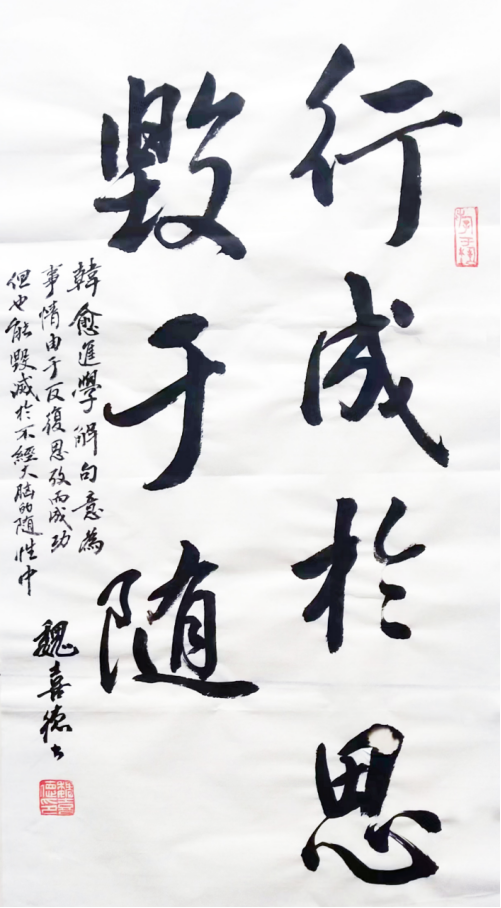 行成於思
毁于随
韓愈進學解句意為
事情由于反復思攷而成功
但也能毁滅於不經大脑的随性中
魏喜德书